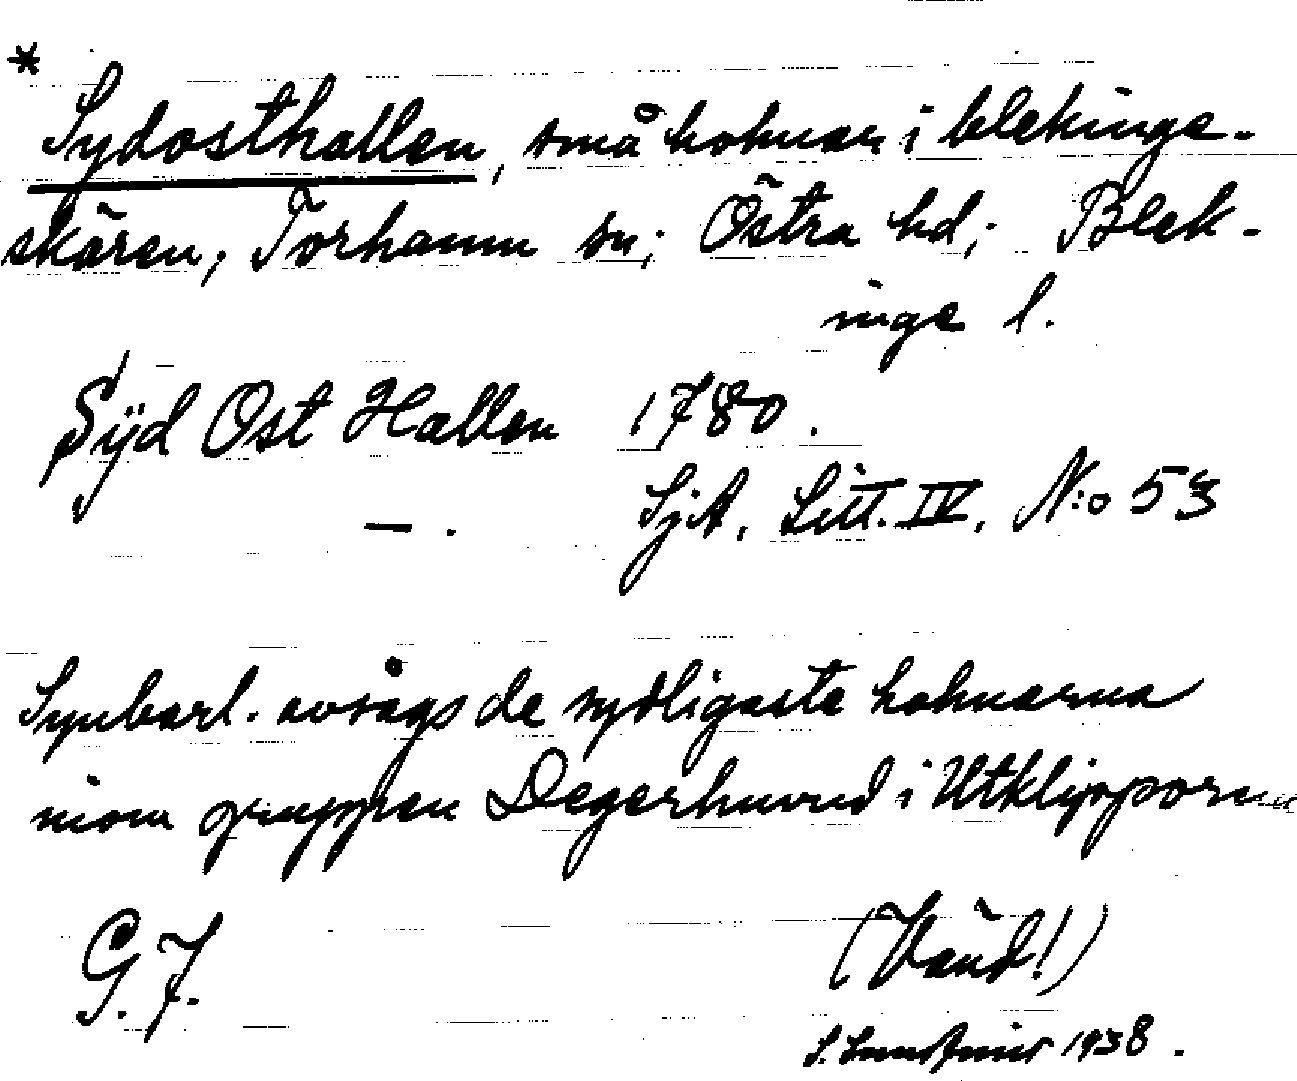 *
Sydosthallen, små holmar i blekinge-
skären, Torhamn sn; Östra hd; Blek-
inge l.
Syd Ost Hallen 1780.
— . SjA, Litt. IV, N:o 53
Synbarl. avsågs de sydligaste holmarna
inom gruppen Degerhuvud i Utklipporna
G. F. (Vänd!)
S. 1938.